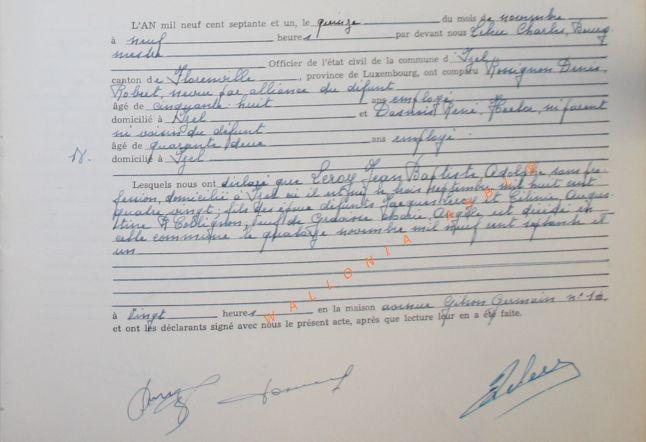 L'AN mil neuf cent septante et un, le quinze du mois de novembre
à neuf heures par devant nous Charles, Bourg
mestre Officier de l'état civil de la commune d'Izel
canton de Florenville, province de Luxembourg, ont comparu Rossignon Denis,
Robert, neveu par alliance du défunt
âgé de cinquante huit ans employé
domicilié à Izel et René, ni parent
ni voisin du défunt
âgé de quarante deux ans employé
N. domicilié à Izel
Lesquels nous ont déclaré que Leroy Jean Baptiste, Adolphe sans pro-
fession, domicilié à Izel où il est né le trois septembre mil huit cent
quatre vingt; fils des époux défunts Jacques Leroy et Augus-
tine Collignon, veuf de Marie, Angèle est décédé en
cette commune le quatorze novembre mil neuf cent septante et
un
à vingt heures en la maison avenue Gilson Germain n°
et ont les déclarants signé avec nous le présent acte, après que lecture leur en a été faite.
WALLONIA